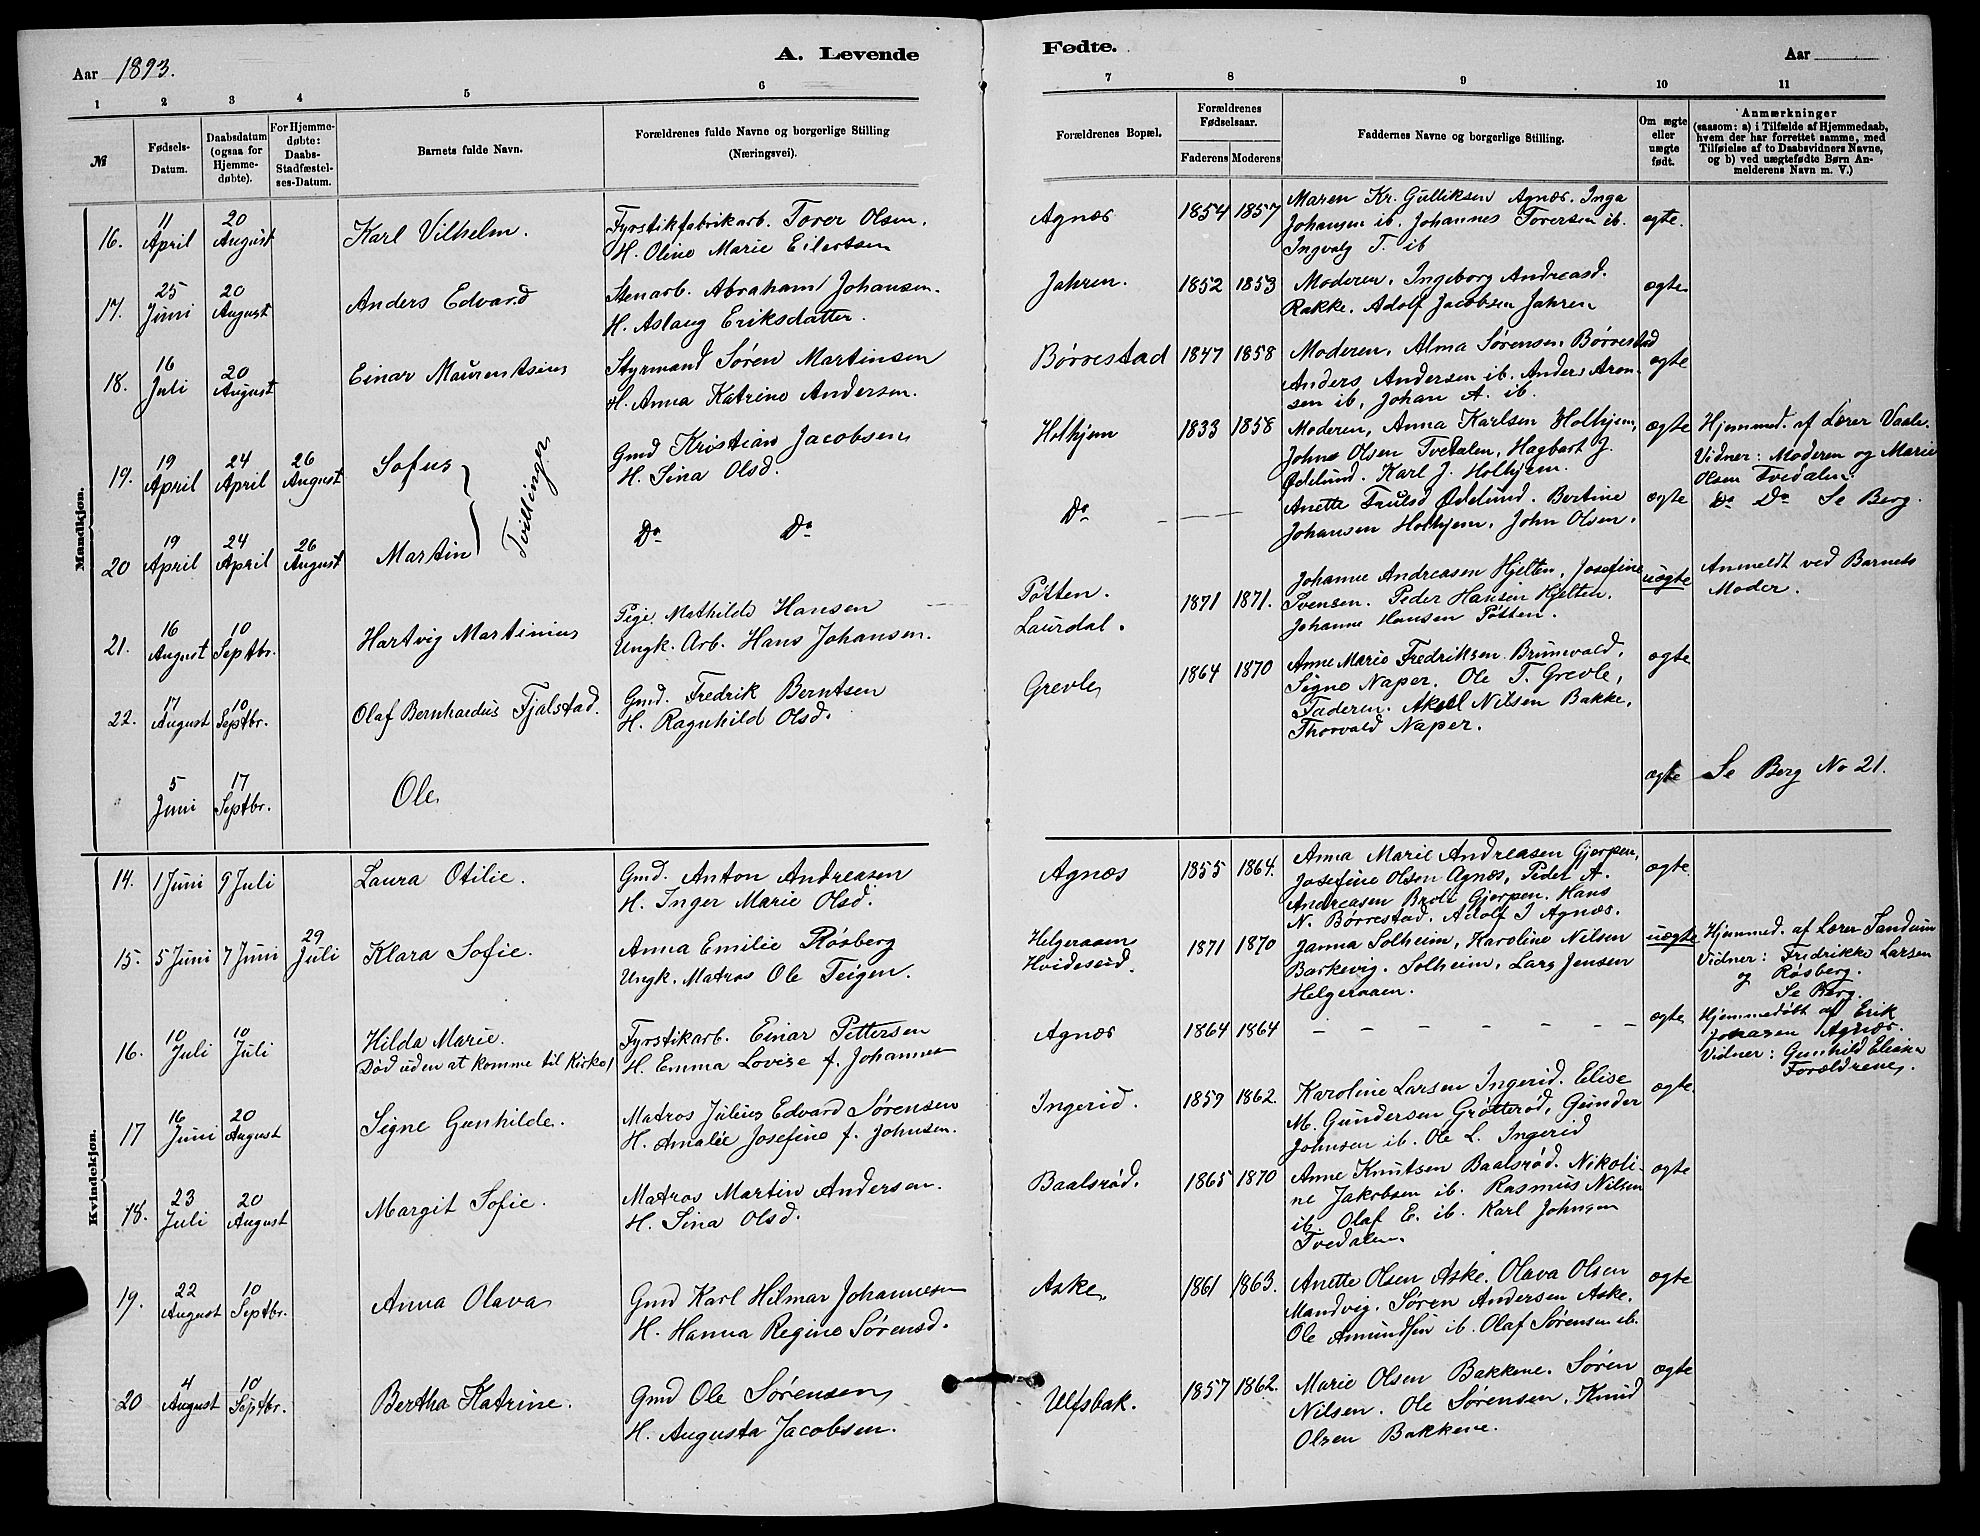 Aar 1893.
A. Levende
1 2 3 4 5 6
№
Fødsels-
Datum.
Daabsdatum
(ogsaa for
Hjemme-
døbte).
For Hjemme-
døbte:
Daabs-
Stadfæstel-
ses-Datum.
Barnets fulde Navn.
Forældrenes fulde Navne og borgerlige Stilling
(Næringsvei).
Mandkjøn.
16. 11 April 20 August Karl Vilhelm. Fyrstikfabrikarb. Torer Olsen.
H. Oline Marie Eilertsen
17. 25 Juni 20 August Anders Edvard Stenarb. Abraham Johansen.
H. Aslaug Eriksdatter.
18. 16 Juli 20 August Einar Maurentsius Styrmand Søren Martinsen
H. Anna Katrine Andersen.
19. 19 April 24 April 26 August Sofus Gmd Kristian Jacobsen
H. Sina Olsd.
Tvillinger
20 19 April 24 April 26 August Martin Do Do
21. 16 August 10 Septbr. Hartvig Martinius Pige. Mathilde Hansen
Ungk. Arb. Hans Johansen.
22. 17 August 10 Septbr. Olaf Bernhardus Fjalstad. Gmd. Fredrik Berntsen
H. Ragnhild Olsd.
5 Juni 17 Septbr. Ole
Kvindekjøn.
14. 1 Juni 9 Juli Laura Otilie. Gmd. Anton Andreasen
H. Inger Marie Olsd.
15. 5 Juni 7 Juni 29 Juli Klara Sofie. Anna Emilie Røsberg
Ungk. Matros Ole Teigen.
16. 10 Juli 10 Juli Hilda Marie. Fyrstikarb. Einar Pettersen
Død uden at komme til Kirke, H. Emma Lovise f. Johannes
17 16 Juni 20 August Signe Gunhilde. Matros Julius Edvard Sørensen
H. Amalie Josefine f. Johnsen.
18. 23 Juli 20 August Margit Sofie. Matros Martin Andersen.
H. Sina Olsd.
19. 22 August 10 Septbr. Anna Olava Gmd Karl Hilmar Johannesen
H. Hanna Regine Sørensd.
20 4 August 10 Septbr. Bertha Katrine. Gmd Ole Sørensen
H. Augusta Jacobsen.
Fødte.
Aar
7 8 9 10 11
Forældrenes Bopæl.
Forældrenes
Fødselsaar.
Faderens Moderens
Faddernes Navne og borgerlige Stilling.
Om ægte
eller
uægte
født.
Anmærkninger
(saasom: a) i Tilfælde af Hjemmedaab,
hvem der har forrettet samme, med
Tilføielse af to Daabsvidners Navne,
og b) ved uægtefødte Børn An-
melderens Navn m. V.)
Agnæs 1854 1857 Maren Kr. Gulliksen Agnæs. Inga ægte.
Johansen ib. Johannes Torersen ib.
Ingvalg T. ib
Jahren. 1852 1853 Moderen, Ingeborg Andreasd. ægte
Rakke. Adolf Jacobsen Jahren
Børrestad 1847 1858 Moderen, Alma Sørensen Børrestad ægte
Anders Andersen ib. Anders Aron-
sen ib, Johan A. ib.
Holhjem 1833 1858 Moderen, Anna Karlsen Holhjem, ægte Hjemmed. af Lærer Vaale.
John Olsen Tvedalen, Hagbart J. Vidner: Moderen og Marie
Ødelund. Karl J. Holhjem. Olsen Tvedalen.
Do Anette Trulsd Ødelund. Bertine ægte Do Do Se Berg.
Johansen Holhjem, John Olsen.
Pøtten. 1871 1871. Johanne Andreasen Hjelten, Josefine uægte Anmeldt ved Barnets
Laurdal. Svensen. Peder Hansen Hjelten. Moder.
Johanne Hansen Pøtten.
Grevle 1864 1870 Anne Marie Fredriksen Brunvald, ægte
Signe Naper. Ole T. Grevle,
Faderen. Aksel Nilsen Bakke,
Thorvald Naper.
ægte Se Berg No 21.
Agnæs 1855 1864. Anna Marie Andreasen Gjerpen, ægte
Josefine Olsen Agnæs, Peder A.
Andreasen Gjerpen. Hans
N. Børrestad. Adolf J Agnæs.
Helgeraaen 1871 1870 Janna Solheim, Karoline Nilsen uægte Hjemmed. af Lærer Sandum
Hvideseid. Barkevig. Solheim, Lars Jensen Vidner: Fredrikke Larsen
Helgeraaen. og Røsberg.
Se Berg.
Agnæs 1864 1864 — — — — — — — ægte Hjemmedøbt af Erik
Johnsen Agnæs.
Vidner: Gunhild
Forældrene.
Ingerid. 1859 1862. Karoline Larsen Ingerid. Elise ægte
M. Gundersen Grøtterød, Gunder
Johnsen ib. Ole L. Ingerid
Baalsrød. 1865 1870 Anne Knutsen Baalsrød. Nikoli- ægte
ne Jakobsen ib. Rasmus Nilsen
ib. Olaf E. ib. Karl Johnsen
Tvedalen.
Aske 1861 1863. Anette Olsen Aske. Olava Olsen ægte
Mandvig. Søren Andersen Aske.
Ole Amundsen ib. Olaf Sørensen ib.
Ulfsbak. 1857 1862. Marie Olsen Bakkene. Søren ægte
Nilsen. Ole Sørensen. Knud
Olsen Bakkene.